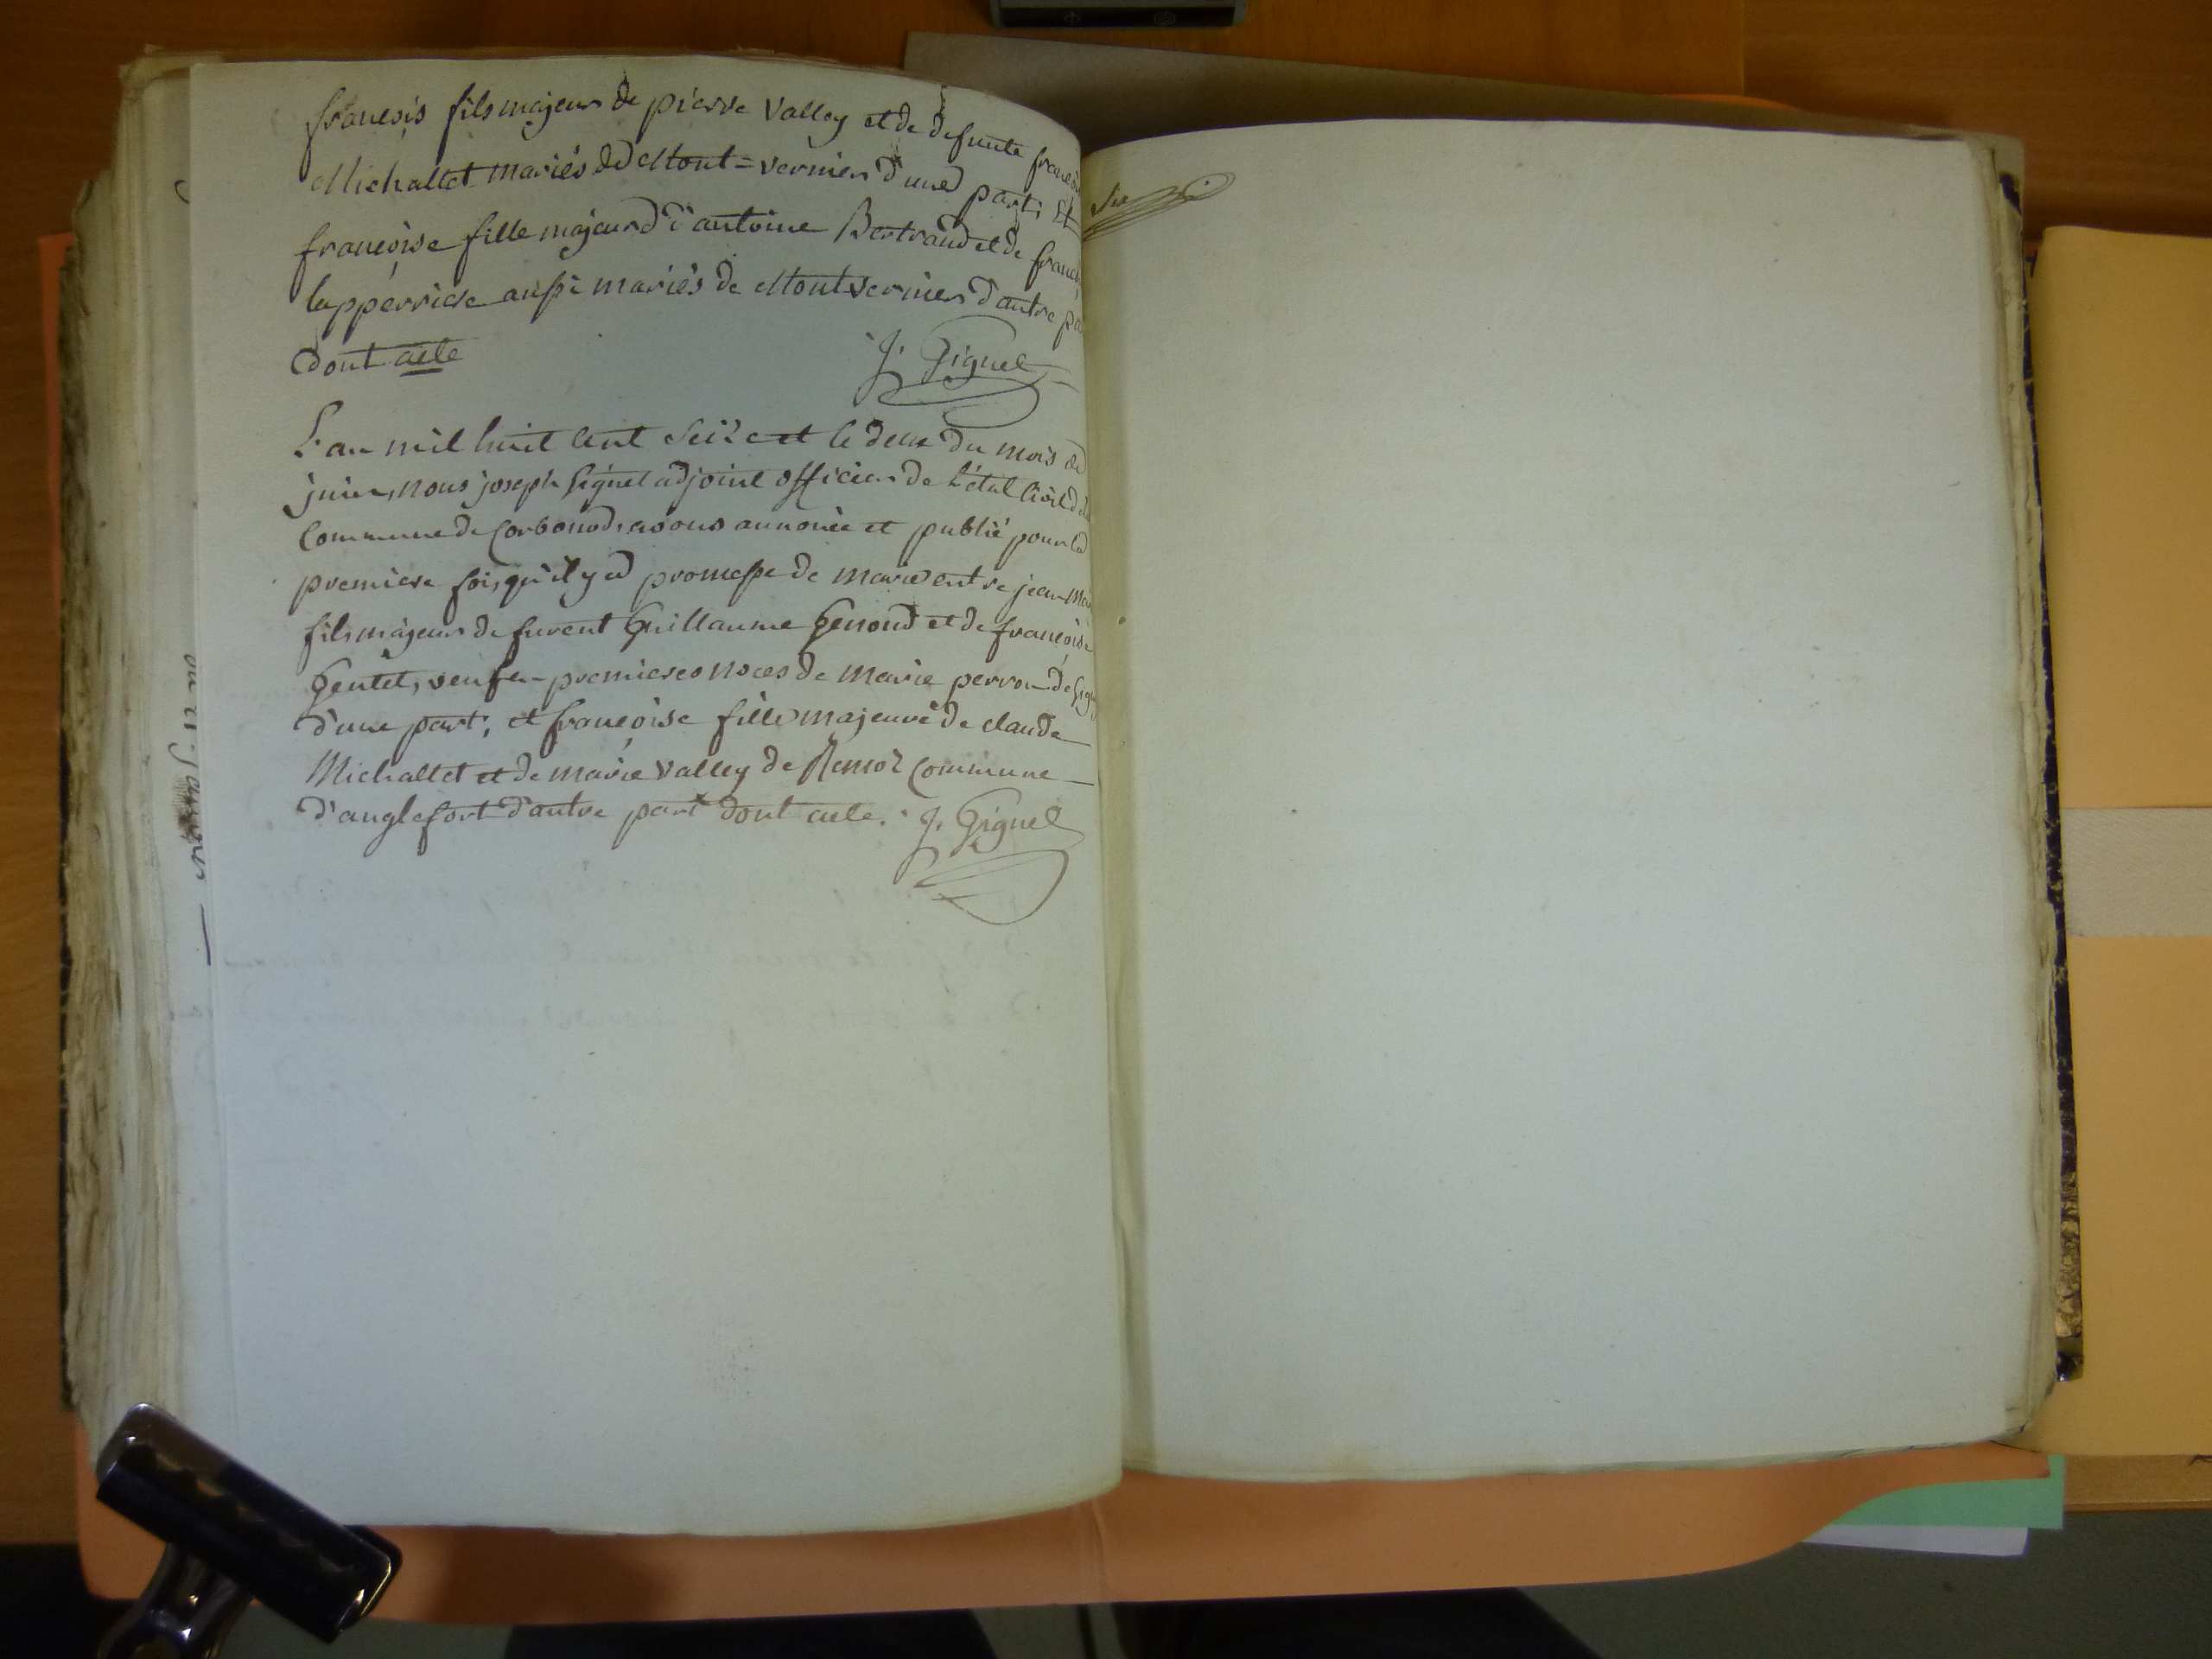 françois fils majeur de pierre Valley et de defunte françoise
Michallet mariés de Mont=vernier d'une part, Et
françoise fille majeure d'antoine Bertrand et de
lapperriere aussi mariés de Montvernier d'autre
dont acte
J. Gignel
L'an mil huit cent seize et le deux du mois de
juin, nous joseph Gignel adjoint officier de l'état Civil de
Commune de Corbonod, avons annoncé et publié pour la
premiere fois, qu'il y a promesse de marie entre jean
fils majeur de furent Guillaume Genoud et de françoise
Gentet, veuf en premieres noces de marie perron de
d'une part, et françoise fille majeure de claude
Michallet et de marie Valley de Remoz Commune
d'anglefort d'autre part dont acte. J. Gignel